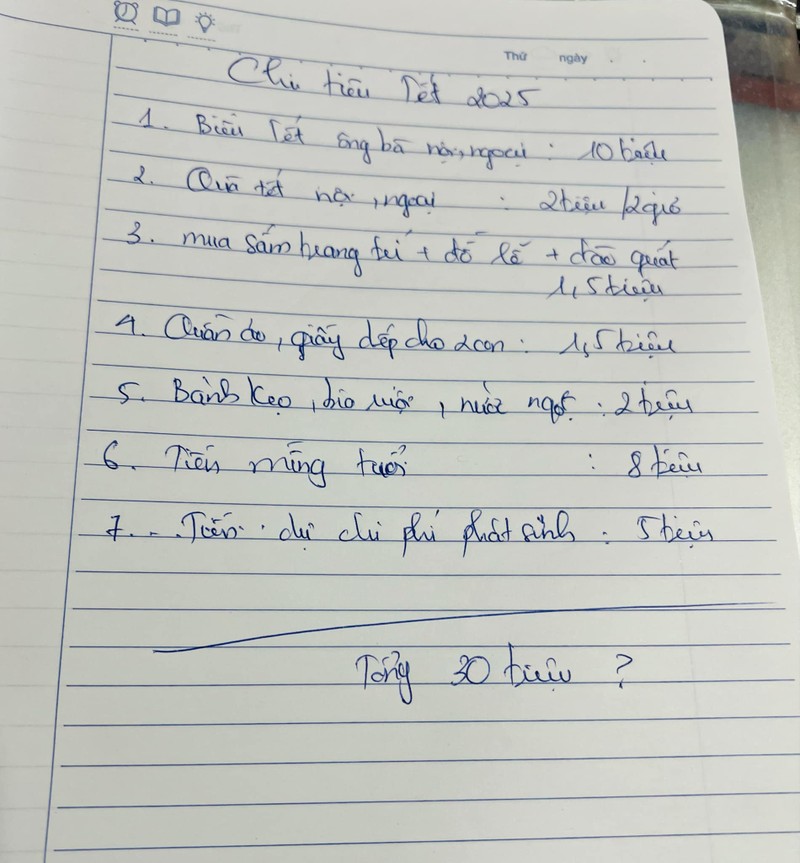 Thứ ngày . .
Chi tiêu Tết 2025
1. Biếu Tết ông bà nội, ngoại : 10 triệu
2. Quà tết nội, ngoại : 2 triệu /2 giỏ
3. mua sắm trang trí + đồ lễ + đào quất
1,5 triệu
4. Quần áo, giầy dép cho 2 con : 1,5 triệu
5. Bánh kẹo, bia rượu, nước ngọt : 2 triệu
6. Tiền mừng tuổi : 8 triệu
7. Tiền dự chi phí phát sinh : 5 triệu
Tổng 30 triệu ?